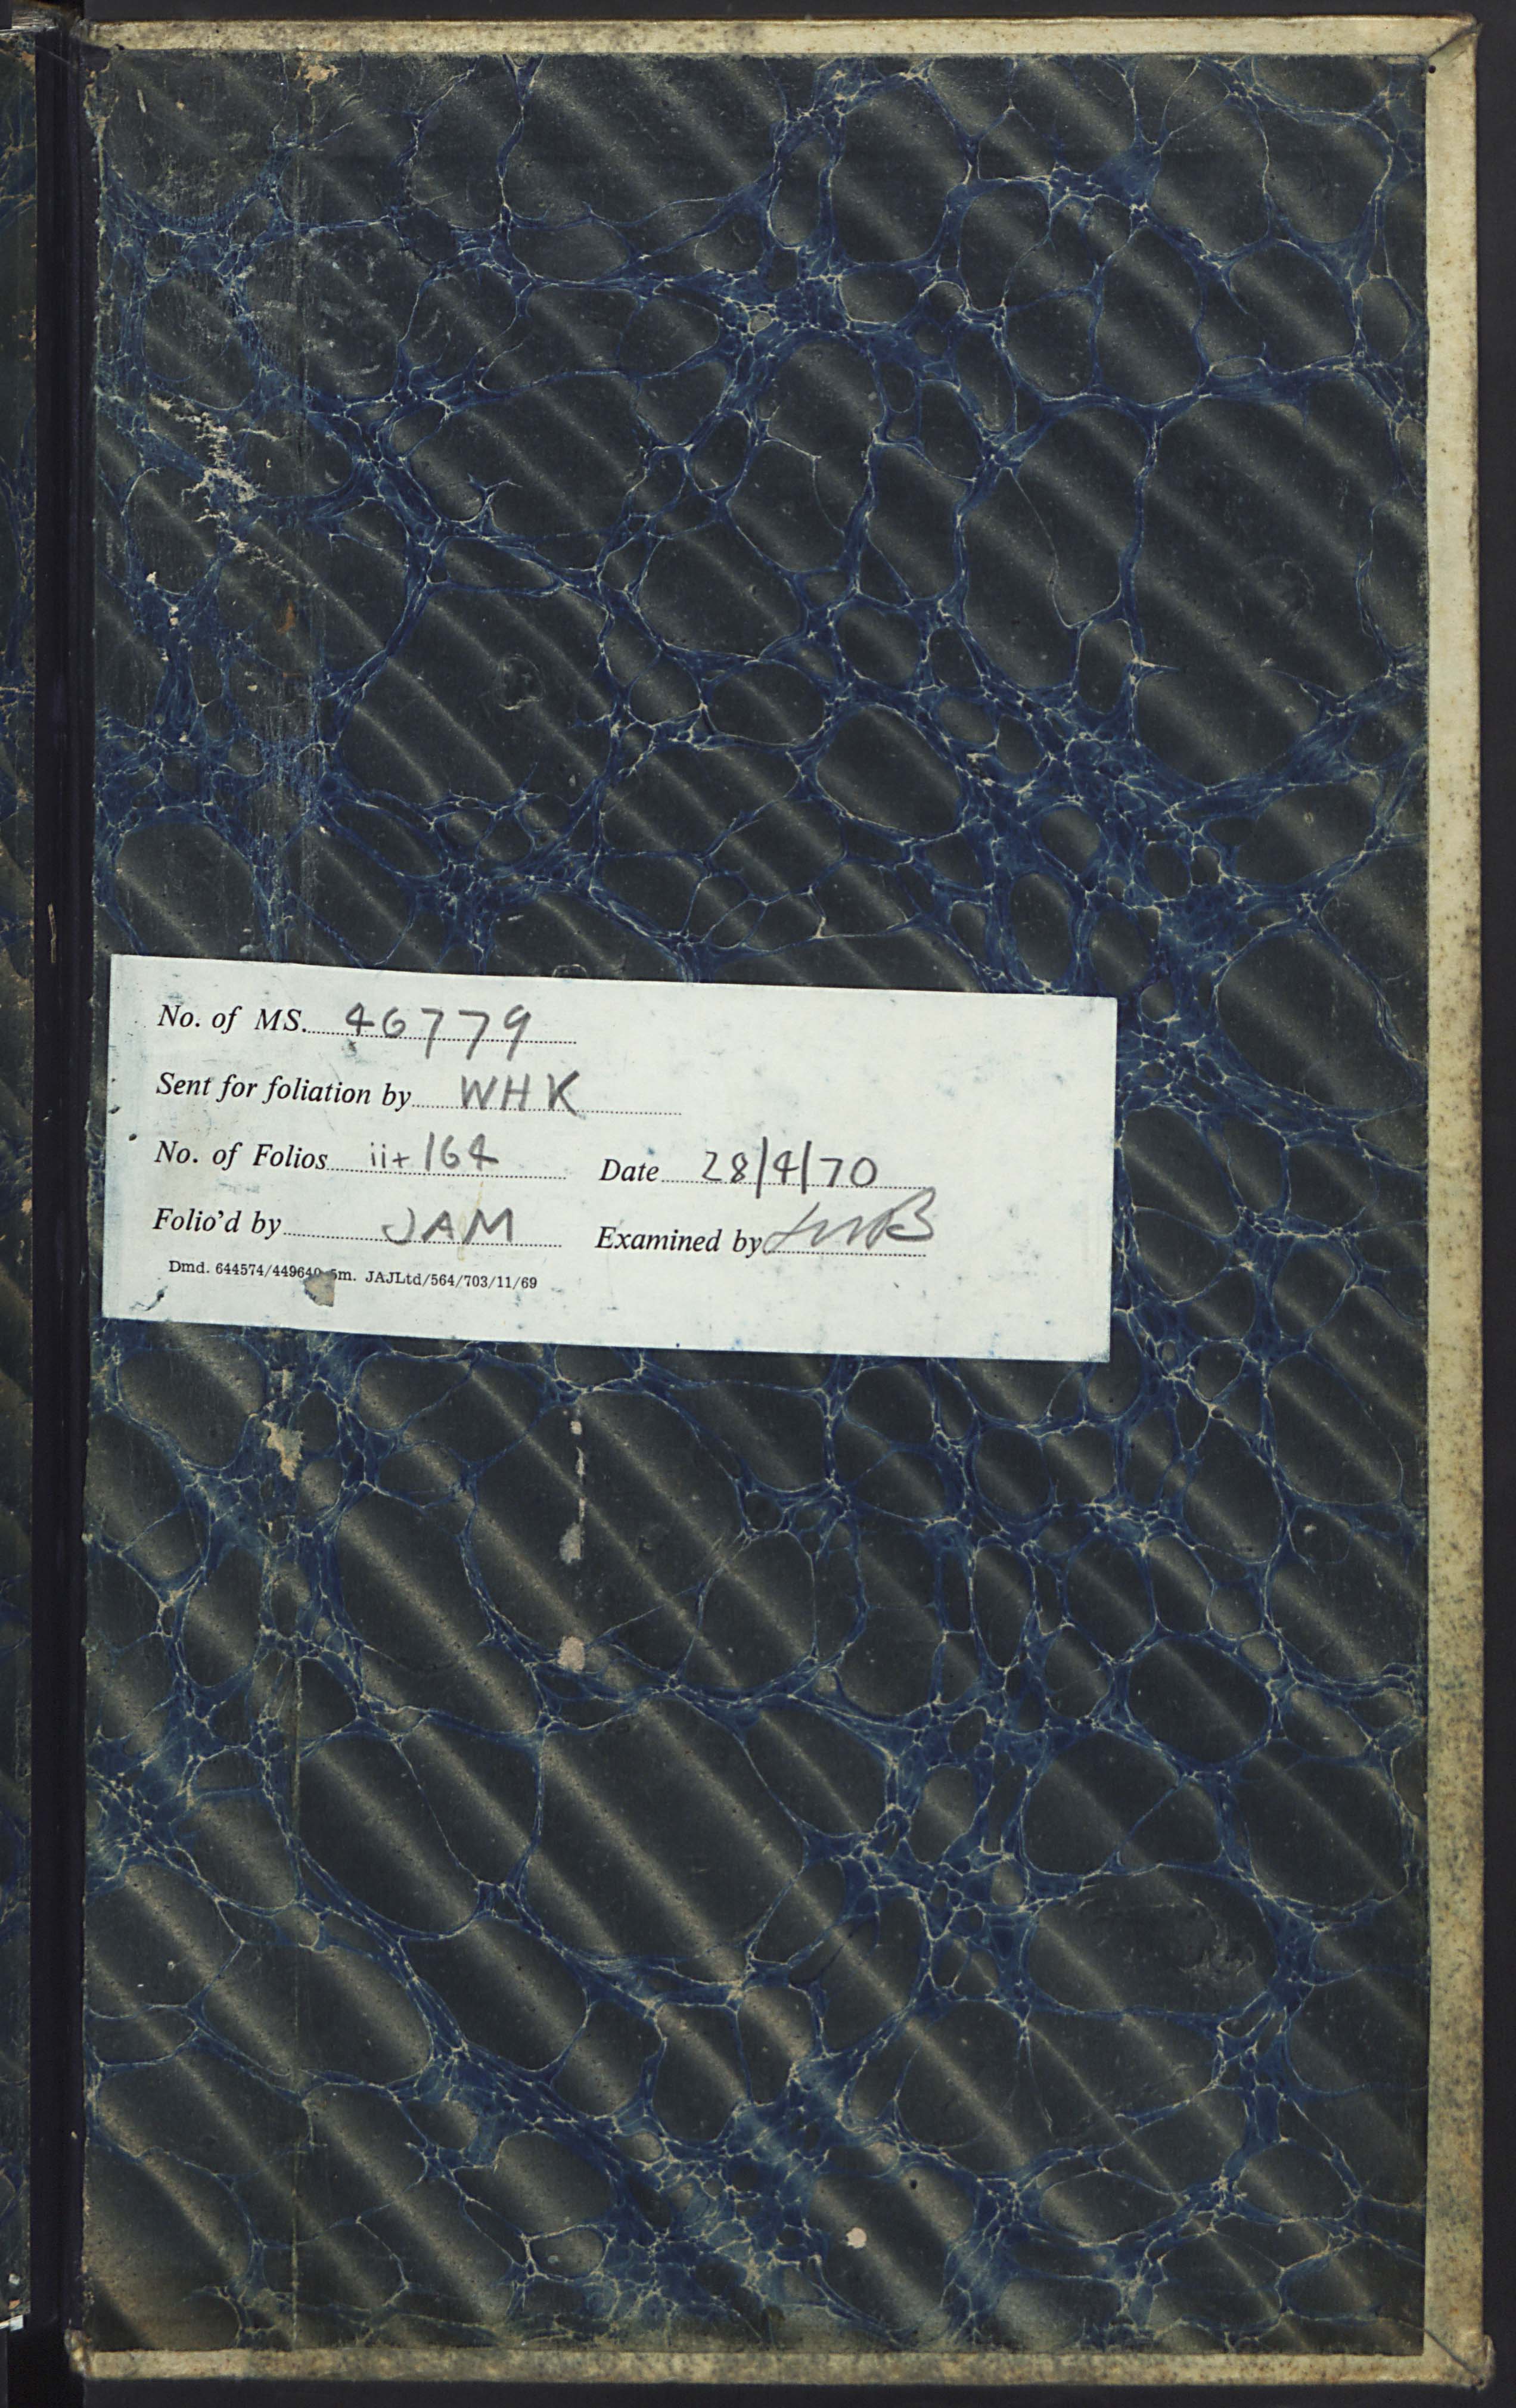 No. of MS. 46779
Sent for foliation by WHK
No. of Folios ii+164 Date 28/4/70
Folio'd by JAM Examined by
Dmd. 644574/449640 5m. JAJLtd/564/703/11/69